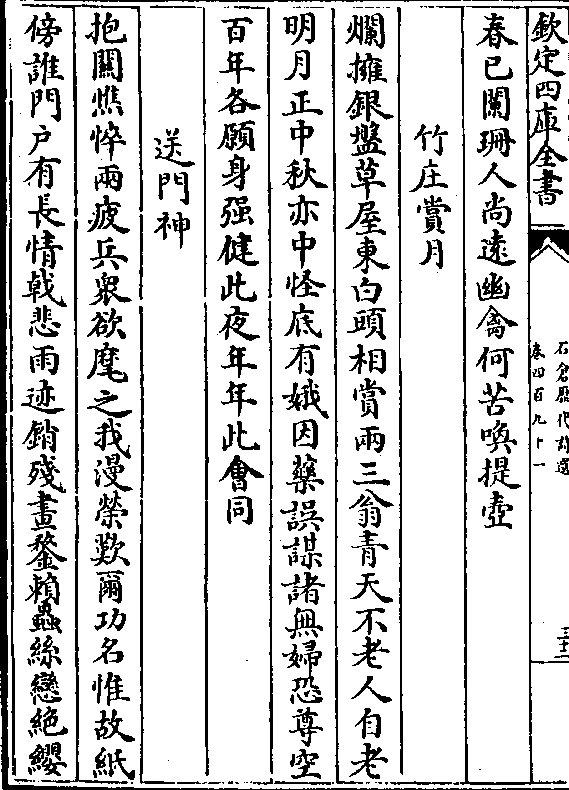 欽定四庫全書
石倉歷代詩選
卷四百九十一
春已闌珊人尚遠幽禽何苦喚提壺
竹庄賞月
爛擁銀盤草屋東白頭相賞兩三翁青天不老人自老
明月正中秋亦中怪底有娥因藥誤謀諸無婦恐尊空
百年各願身强健此夜年年此會同
送門神
抱關憔悴兩疲兵衆欲麾之我漫榮歎爾功名惟故紙
傍誰門户有長情戟悲雨迹銷殘畫鍪賴蟲絲戀絶纓